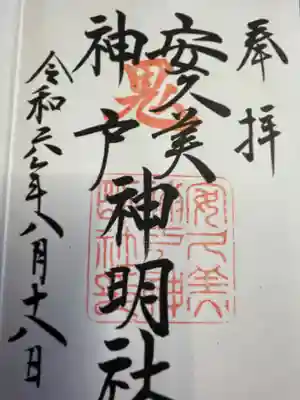 奉拝
安久美
神戸
神明社
鬼
令和六年八月十八日